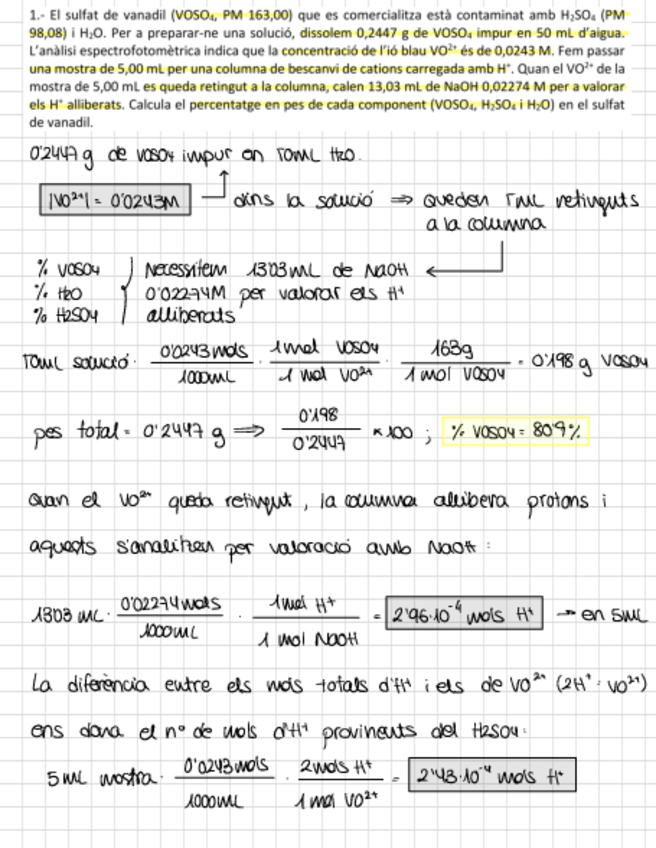 1.- El sulfat de vanadil (VOSO₄, PM 163,00) que es comercialitza està contaminat amb H₂SO₄ (PM
98,08) i H₂O. Per a preparar-ne una solució, dissolem 0,2447 g de VOSO₄ impur en 50 mL d'aigua.
L'anàlisi espectrofotomètrica indica que la concentració de l'ió blau VO²⁺ és de 0,0243 M. Fem passar
una mostra de 5,00 mL per una columna de bescanvi de cations carregada amb H⁺. Quan el VO²⁺ de la
mostra de 5,00 mL es queda retingut a la columna, calen 13,03 mL de NaOH 0,02274 M per a valorar
els H⁺ alliberats. Calcula el percentatge en pes de cada component (VOSO₄, H₂SO₄ i H₂O) en el sulfat
de vanadil.
0'2447 g de VOSO4 impur en 50mL H2O.
|VO²⁺| = 0'0243M dins la solució ⇒ queden 5mL retinguts
a la columna
% VOSO4 Necessitem 13'03 mL de NaOH
% H2O 0'02274M per valorar els H⁺
% H2SO4 alliberats
50mL solució · 0'0243mols/1000mL · 1mol VOSO4/1 mol VO²⁺ · 163g/1 mol VOSO4 = 0'198 g VOSO4
pes total = 0'2447 g ⇒ 0'198/0'2447 × 100 ; % VOSO4 = 80'9 %
Quan el VO²⁺ queda retingut, la columna allibera protons i
aquests s'analitzen per valoració amb NaOH :
13'03 mL · 0'02274mols/1000mL · 1mol H⁺/1 mol NaOH = 2'96·10⁻⁴ mols H⁺ → en 5mL
La diferència entre els mols totals d'H⁺ i els de VO²⁺ (2H⁺ : VO²⁺)
ens dona el nº de mols d'H⁺ provinents del H2SO4:
5mL mostra · 0'0243mols/1000mL · 2mols H⁺/1 mol VO²⁺ = 2'43·10⁻⁴ mols H⁺